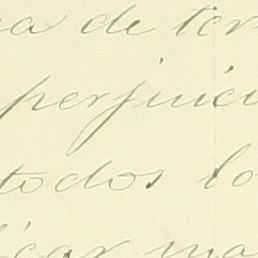 a de ter
perjuici
todos lo
icar ma